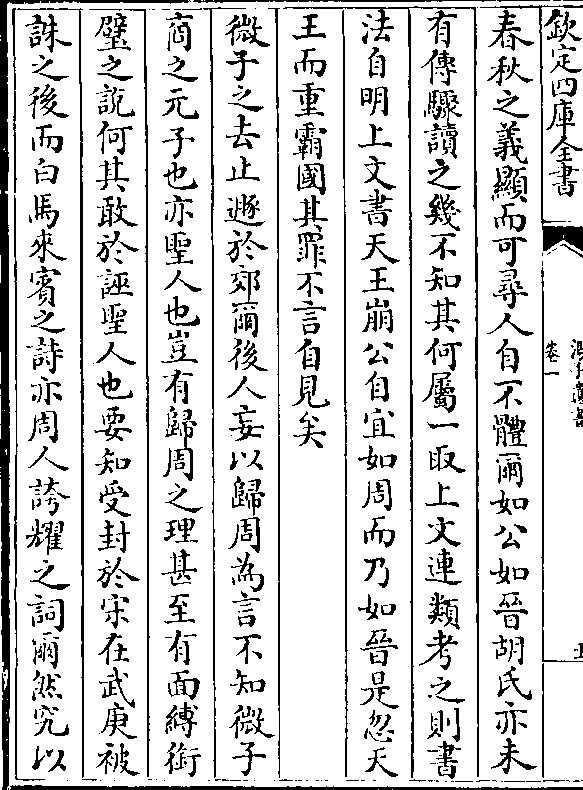 欽定四庫全書
卷一
春秋之義顯而可尋人自不體爾如公如晉胡氏亦未
有傳驟讀之幾不知其何屬一取上文連類考之則書
法自明上文書天王崩公自宜如周而乃如晉是忽天
王而重霸國其罪不言自見矣
微子之去止遯於郊爾後人妄以歸周為言不知微子
商之元子也亦聖人也豈有歸周之理甚至有面縛銜
璧之說何其敢於誣聖人也要知受封於宋在武庚被
誅之後而白馬來賓之詩亦周人誇耀之詞爾然究以